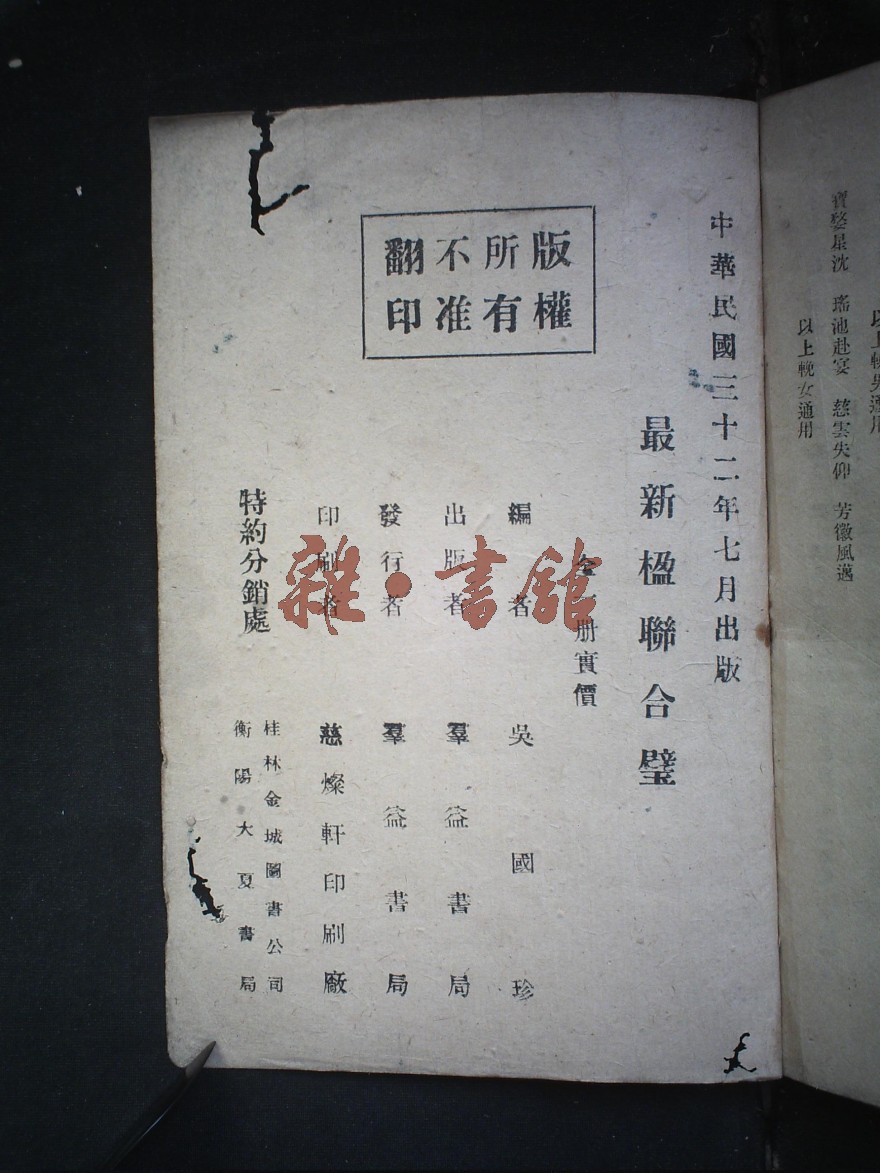 以上輓男通用
寶婺星沈　瑤池赴宴　慈雲失仰　芳徽風邁
以上輓女通用
中華民國三十二年七月出版
最新楹聯合璧
全　册實價
版權
所有
不准
翻印
編者　吳國珍
出版者　羣益書局
發行者　羣益書局
印刷者　慈燦軒印刷廠
特約分銷處
桂林金城圖書公司
衡陽大夏書局
雜·書館